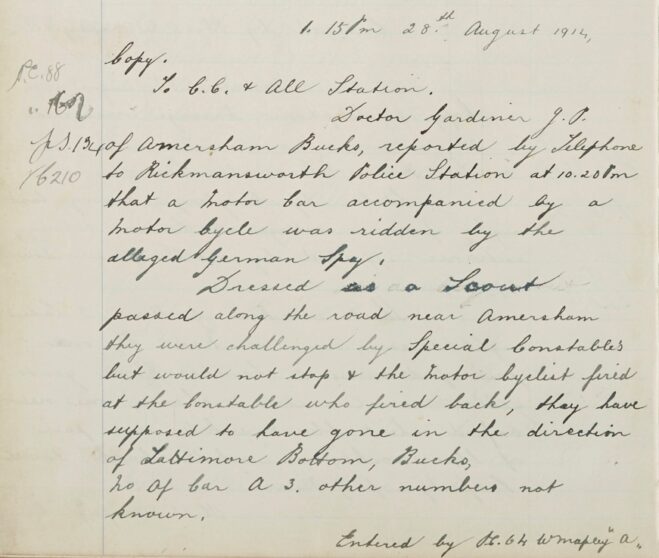 1. 15 Pm 28th August 1914,
Copy.
P.C. 88
To C.C. & All Station.
Doctor Gardiner J. P.
P.S. 134
of Amersham Bucks, reported by Telephone
6210
to Rickmansworth Police Station at 10.20 Pm
that a Motor Car accompanied by a
Motor Cycle was ridden by the
alleged German Spy.
Dressed as a Scout
passed along the road near Amersham
they were challenged by Special Constables
but would not stop & the Motor Cyclist fired
at the Constable who fired back, they have
supposed to have gone in the direction
of Lattimore Bottom, Bucks,
No of Car A 3. other numbers not
known.
Entered by P.C. 64 "A"